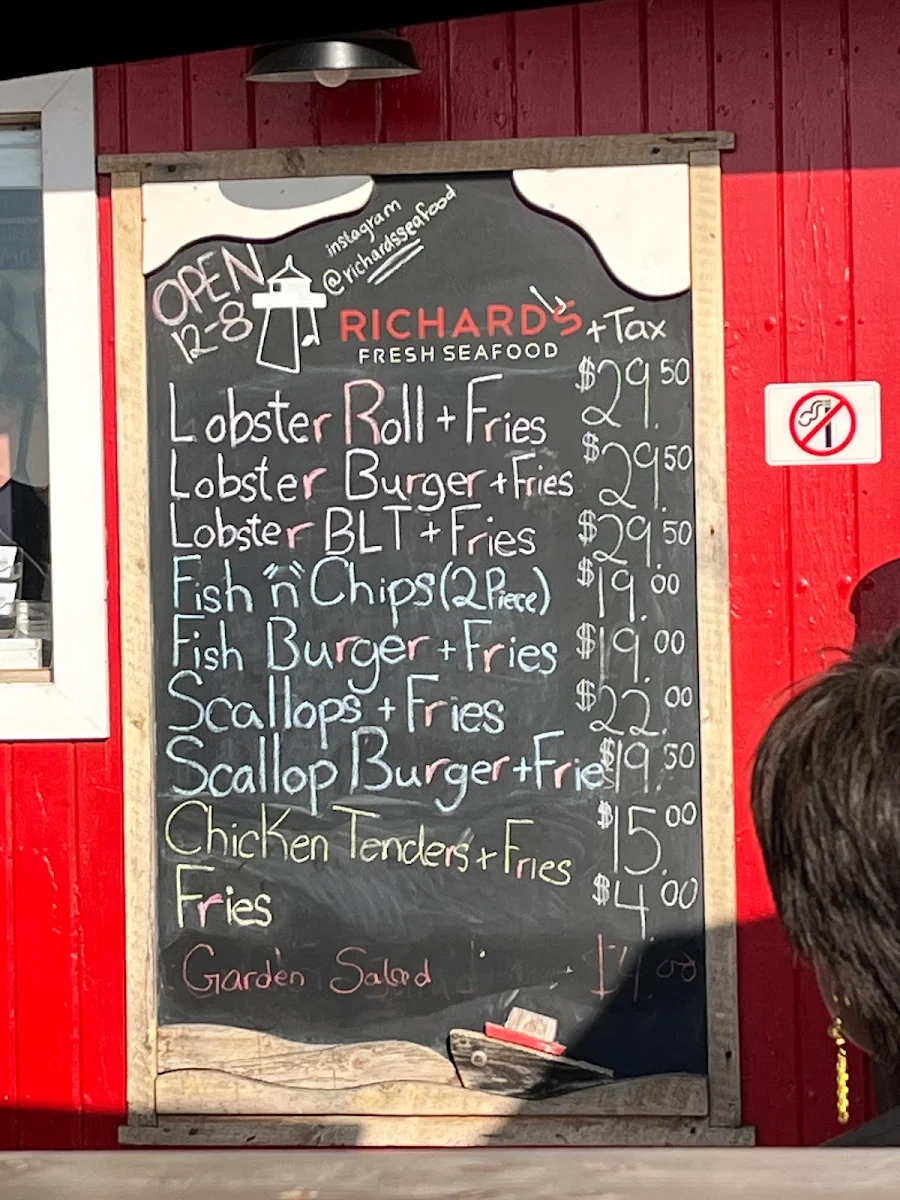 instagram
@richardsseafood
OPEN
12-8
RICHARD'S
FRESH SEAFOOD
+Tax
Lobster Roll + Fries $29.50
Lobster Burger + Fries $29.50
Lobster BLT + Fries $29.50
Fish "n" Chips (2 Piece) $19.00
Fish Burger + Fries $19.00
Scallops + Fries $22.00
Scallop Burger + Frie $19.50
Chicken Tenders + Fries $15.00
Fries $4.00
Garden Salad